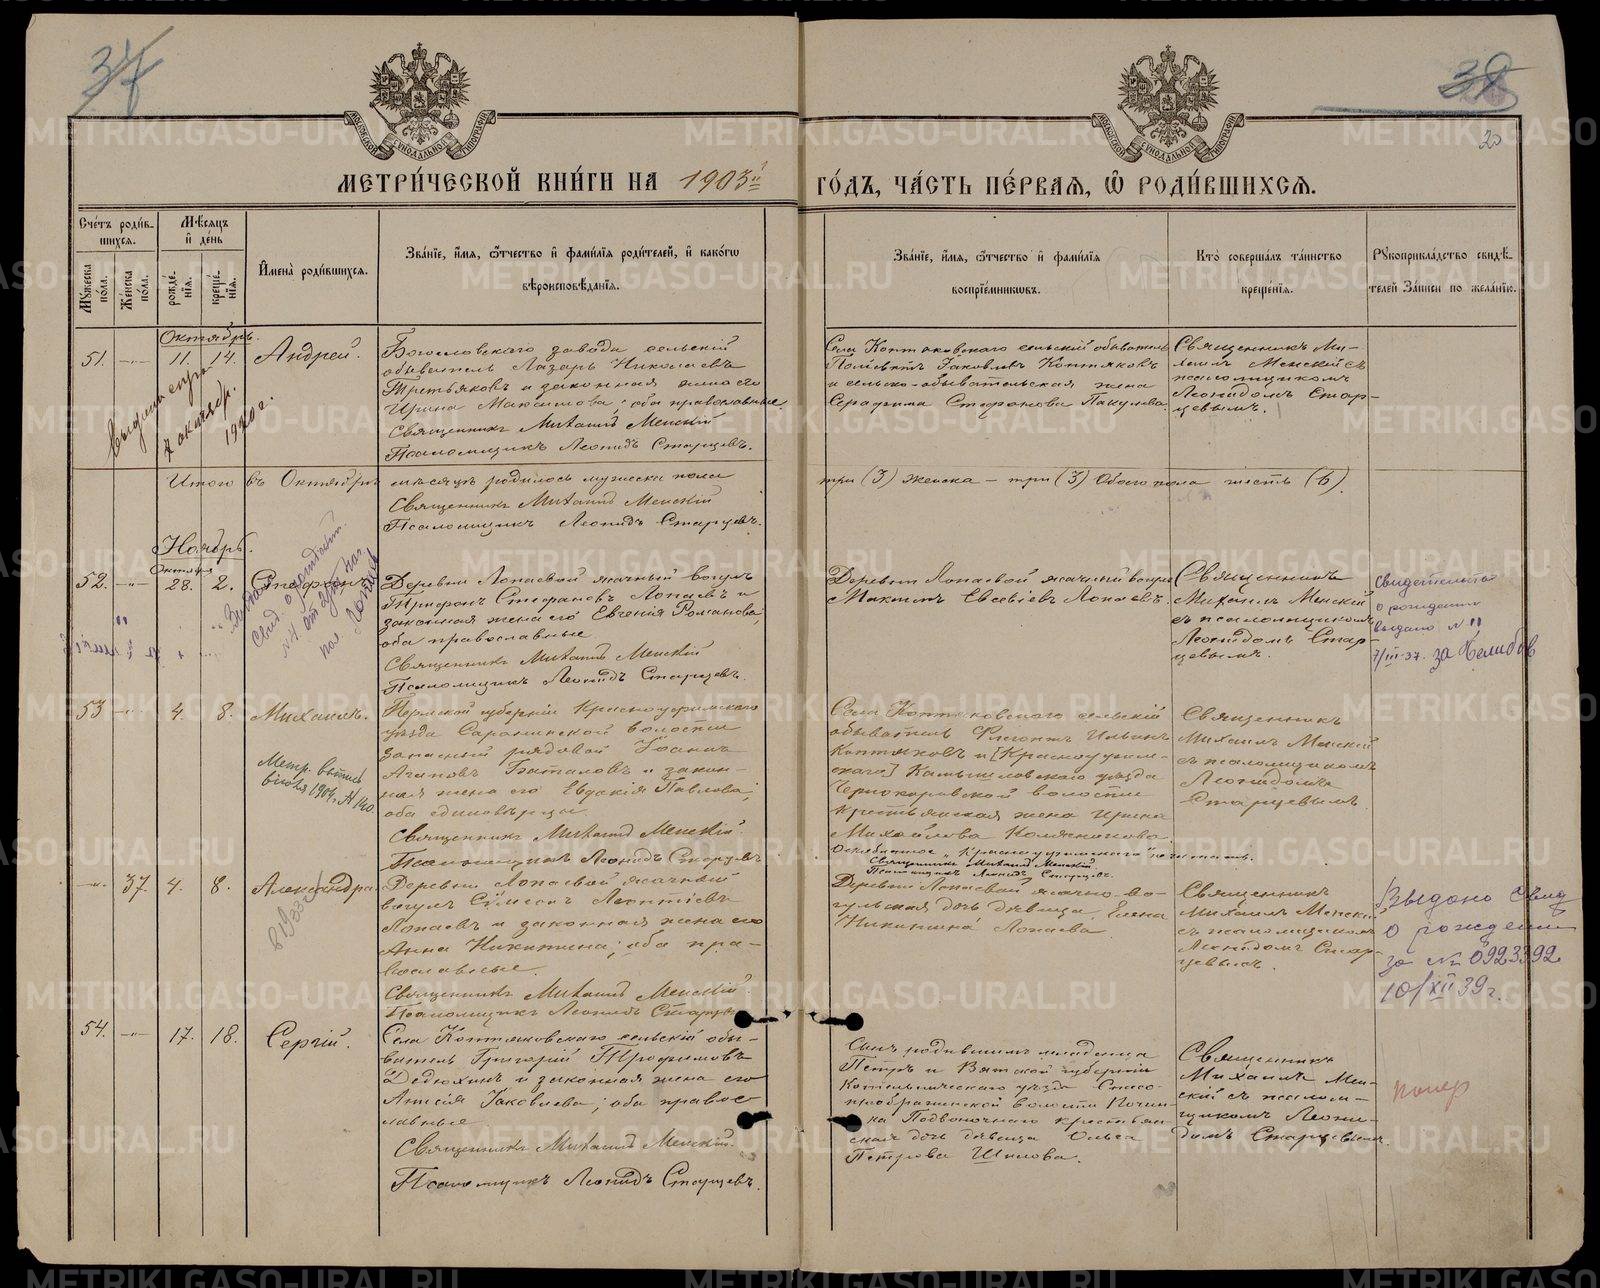 37
38
20
МЕТРИ́ЧЕСКОЙ КНИ́ГИ НА 1903й
ГО́ДЪ, ЧА́СТЬ ПЕ́РВАЯ, Ѿ РОДИ́ВШИХСЯ.
Сче́тъ роди́в-
шихся.
Му́жеска по́ла.
Же́нска по́ла.
Мѣ́сяцъ и де́нь
рожде́нія.
креще́нія.
Имена̀ роди́вшихся.
Зва́ніе, и́мя, о́тчество и фами́лія роди́телей, и како́гω
вѣроисповѣ́данія.
Зва́ніе, и́мя, о́тчество и фами́лія
воспріе́мникωвъ.
Кто̀ соверша́лъ та́инство
креще́нія.
Рукоприкла́дство свидѣ́-
телей за́писи по жела́нію.
Октябрь.
51. 11. 14. Андрей.
Богословскаго завода сельскій
обыватель Лазарь Николаевъ
Третьяковъ и законная жена его
Ирина Максимова; оба православные.
Священникъ Михаилъ Менскій
Псаломщикъ Леонидъ Старцевъ.
Села Коптяковскаго сельскій обыватель
Іаковлевъ Коптяковъ
и сельско-обывательская жена
Серафима Стефанова Пакулева.
Священникъ Ми-
хаилъ Менскій съ
псаломщикомъ
Леонидомъ Стар-
цевымъ.
7 октябр.
1920 г.
Итого въ Октябрѣ мѣсяцѣ родилось мужеска пола
три (3) женска – три (3) Обоего пола шесть (6).
Священникъ Михаилъ Менскій
Псаломщикъ Леонидъ Старцевъ.
Ноябрь.
Октября
52. 28. 2. Стефанъ
Деревни Лопаевой ясачный вогулъ
Трифонъ Стефановъ Лопаевъ и
законная жена его Евгенія Романова,
оба православные
Священникъ Михаилъ Менскій
Псаломщикъ Леонидъ Старцевъ.
Деревни Лопаевой ясачный вогулъ
Максимъ Евсевіевъ Лопаевъ.
Священникъ
Михаилъ Менскій
съ псаломщикомъ
Леонидомъ Стар-
цевымъ.
Свидетельство
о рождении
выдано N 11
7/III-37. за
53 4. 8. Михаилъ.
Пермской губерніи Красноуфимскаго
уѣзда Саранинской волости
запасный рядовой Іоаннъ
Агаповъ Баталовъ и закон-
ная жена его Евдокія Павлова,
оба единовѣрцы
Священникъ Михаилъ Менскій.
Псаломщикъ Леонидъ Старцевъ
Метр. выпись
1904 г. N 140
Села Коптяковскаго сельскій
обыватель Ильинъ
Коптяковъ и [Красноуфим-
скаго] Камышловскаго уѣзда
Черноковской волости
крестьянская жена Ирина
Михайлова
Красноуфимскаго не читать.
Священникъ Михаилъ Менскій
Псаломщикъ Леонидъ Старцевъ.
Священникъ
Михаилъ Менскій
съ псаломщикомъ
Леонидомъ
Старцевымъ.
37. 4. 8. Александра.
Деревни Лопаевой ясачный
вогулъ Сѵмеонъ Леонтіевъ
Лопаевъ и законная жена его
Анна Никитина; оба пра-
вославные.
Священникъ Михаилъ Менскій.
Псаломщикъ Леонидъ Старцевъ
Деревни Лопаевой ясачно-во-
гульская дочь дѣвица Елена
Никитина Лопаева.
Священникъ
Михаилъ Менскій
съ псаломщикомъ
Леонидомъ Стар-
цевымъ.
Выдано Свид
о рождении
за № 0923392
10/XII 39 г.
54. 17. 18. Сергій.
Села Коптяковскаго сельскій обы-
ватель Григорій Трофимовъ
Дедюхинъ и законная жена его
Анисія Іаковлева; оба правос-
лавные.
Священникъ Михаилъ Менскій.
Псаломщикъ Леонидъ Старцевъ.
Сынъ родившаго младенца
Петръ и Вятской губерніи
Котельническаго уѣзда Спасо-
преображенской волости Почин-
ка Подвоночнаго крестьян-
ская дочь дѣвица Ольга
Петрова Шилова.
Священникъ
Михаилъ Мен-
скій съ псалом-
щикомъ Леони-
домъ Старцевымъ.
помер
METRIKI.GASO-URAL.RU